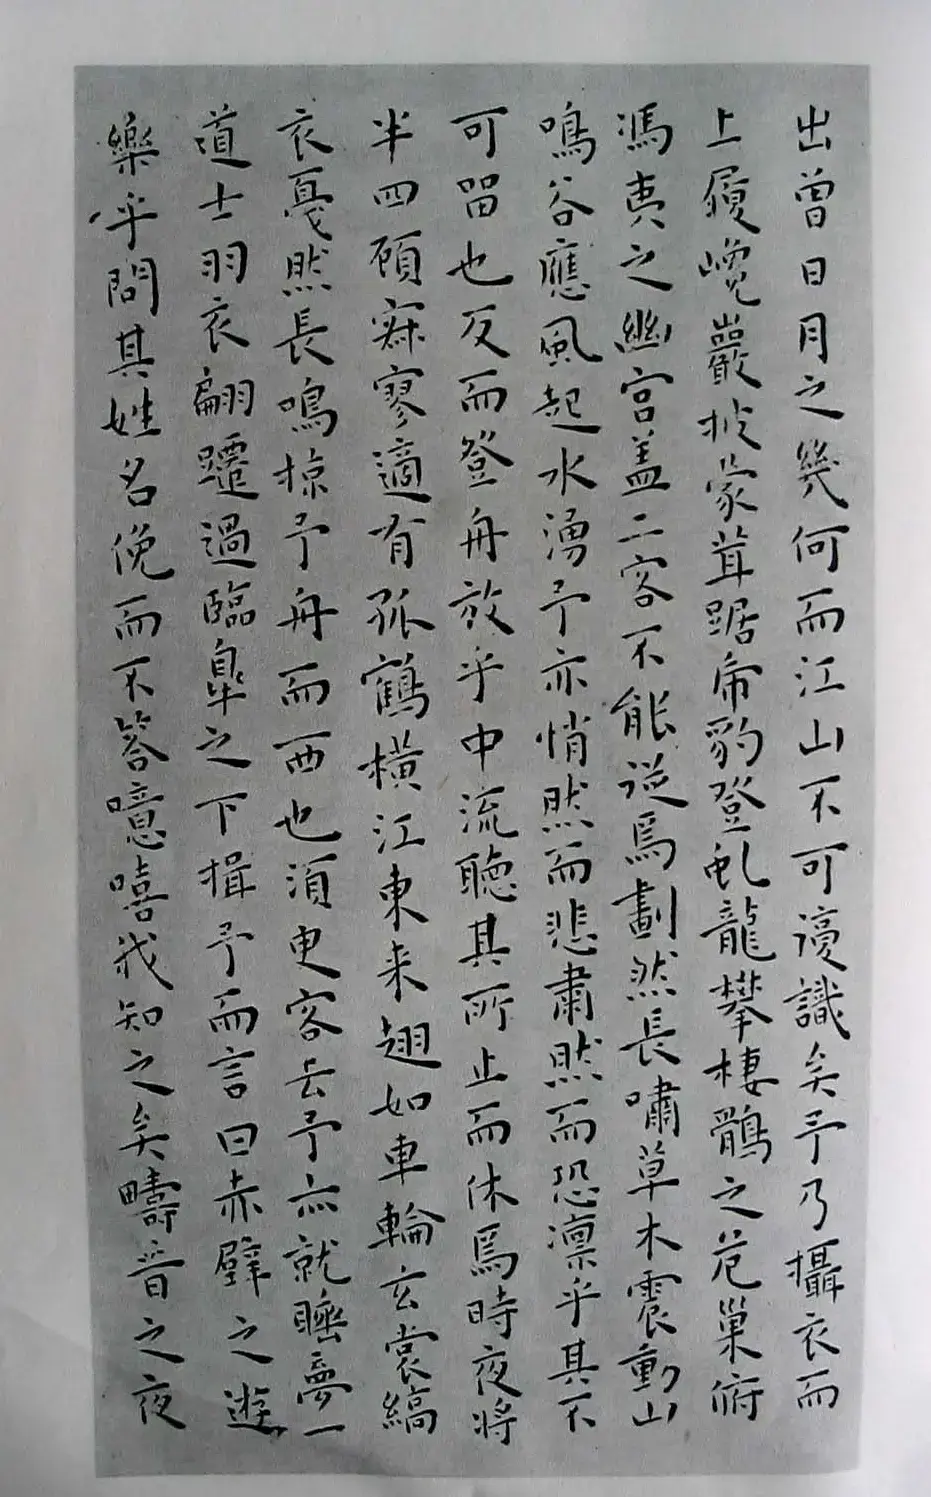 出曾日月之幾何而江山不可復識矣予乃攝衣而
上履巉巖披蒙茸踞虎豹登虬龍攀棲鶻之危巢俯
馮夷之幽宮盖二客不能從焉劃然長嘯草木震動山
鳴谷應風起水湧予亦悄然而悲肅然而恐凛乎其不
可留也反而登舟放乎中流聽其所止而休焉時夜將
半四顧寂寥適有孤鶴橫江東来翅如車輪玄裳縞
衣戛然長鳴掠予舟而西也須臾客去予亦就睡夢一
道士羽衣翩躚過臨皐之下揖予而言曰赤壁之遊
樂乎問其姓名俛而不答噫嘻我知之矣疇昔之夜